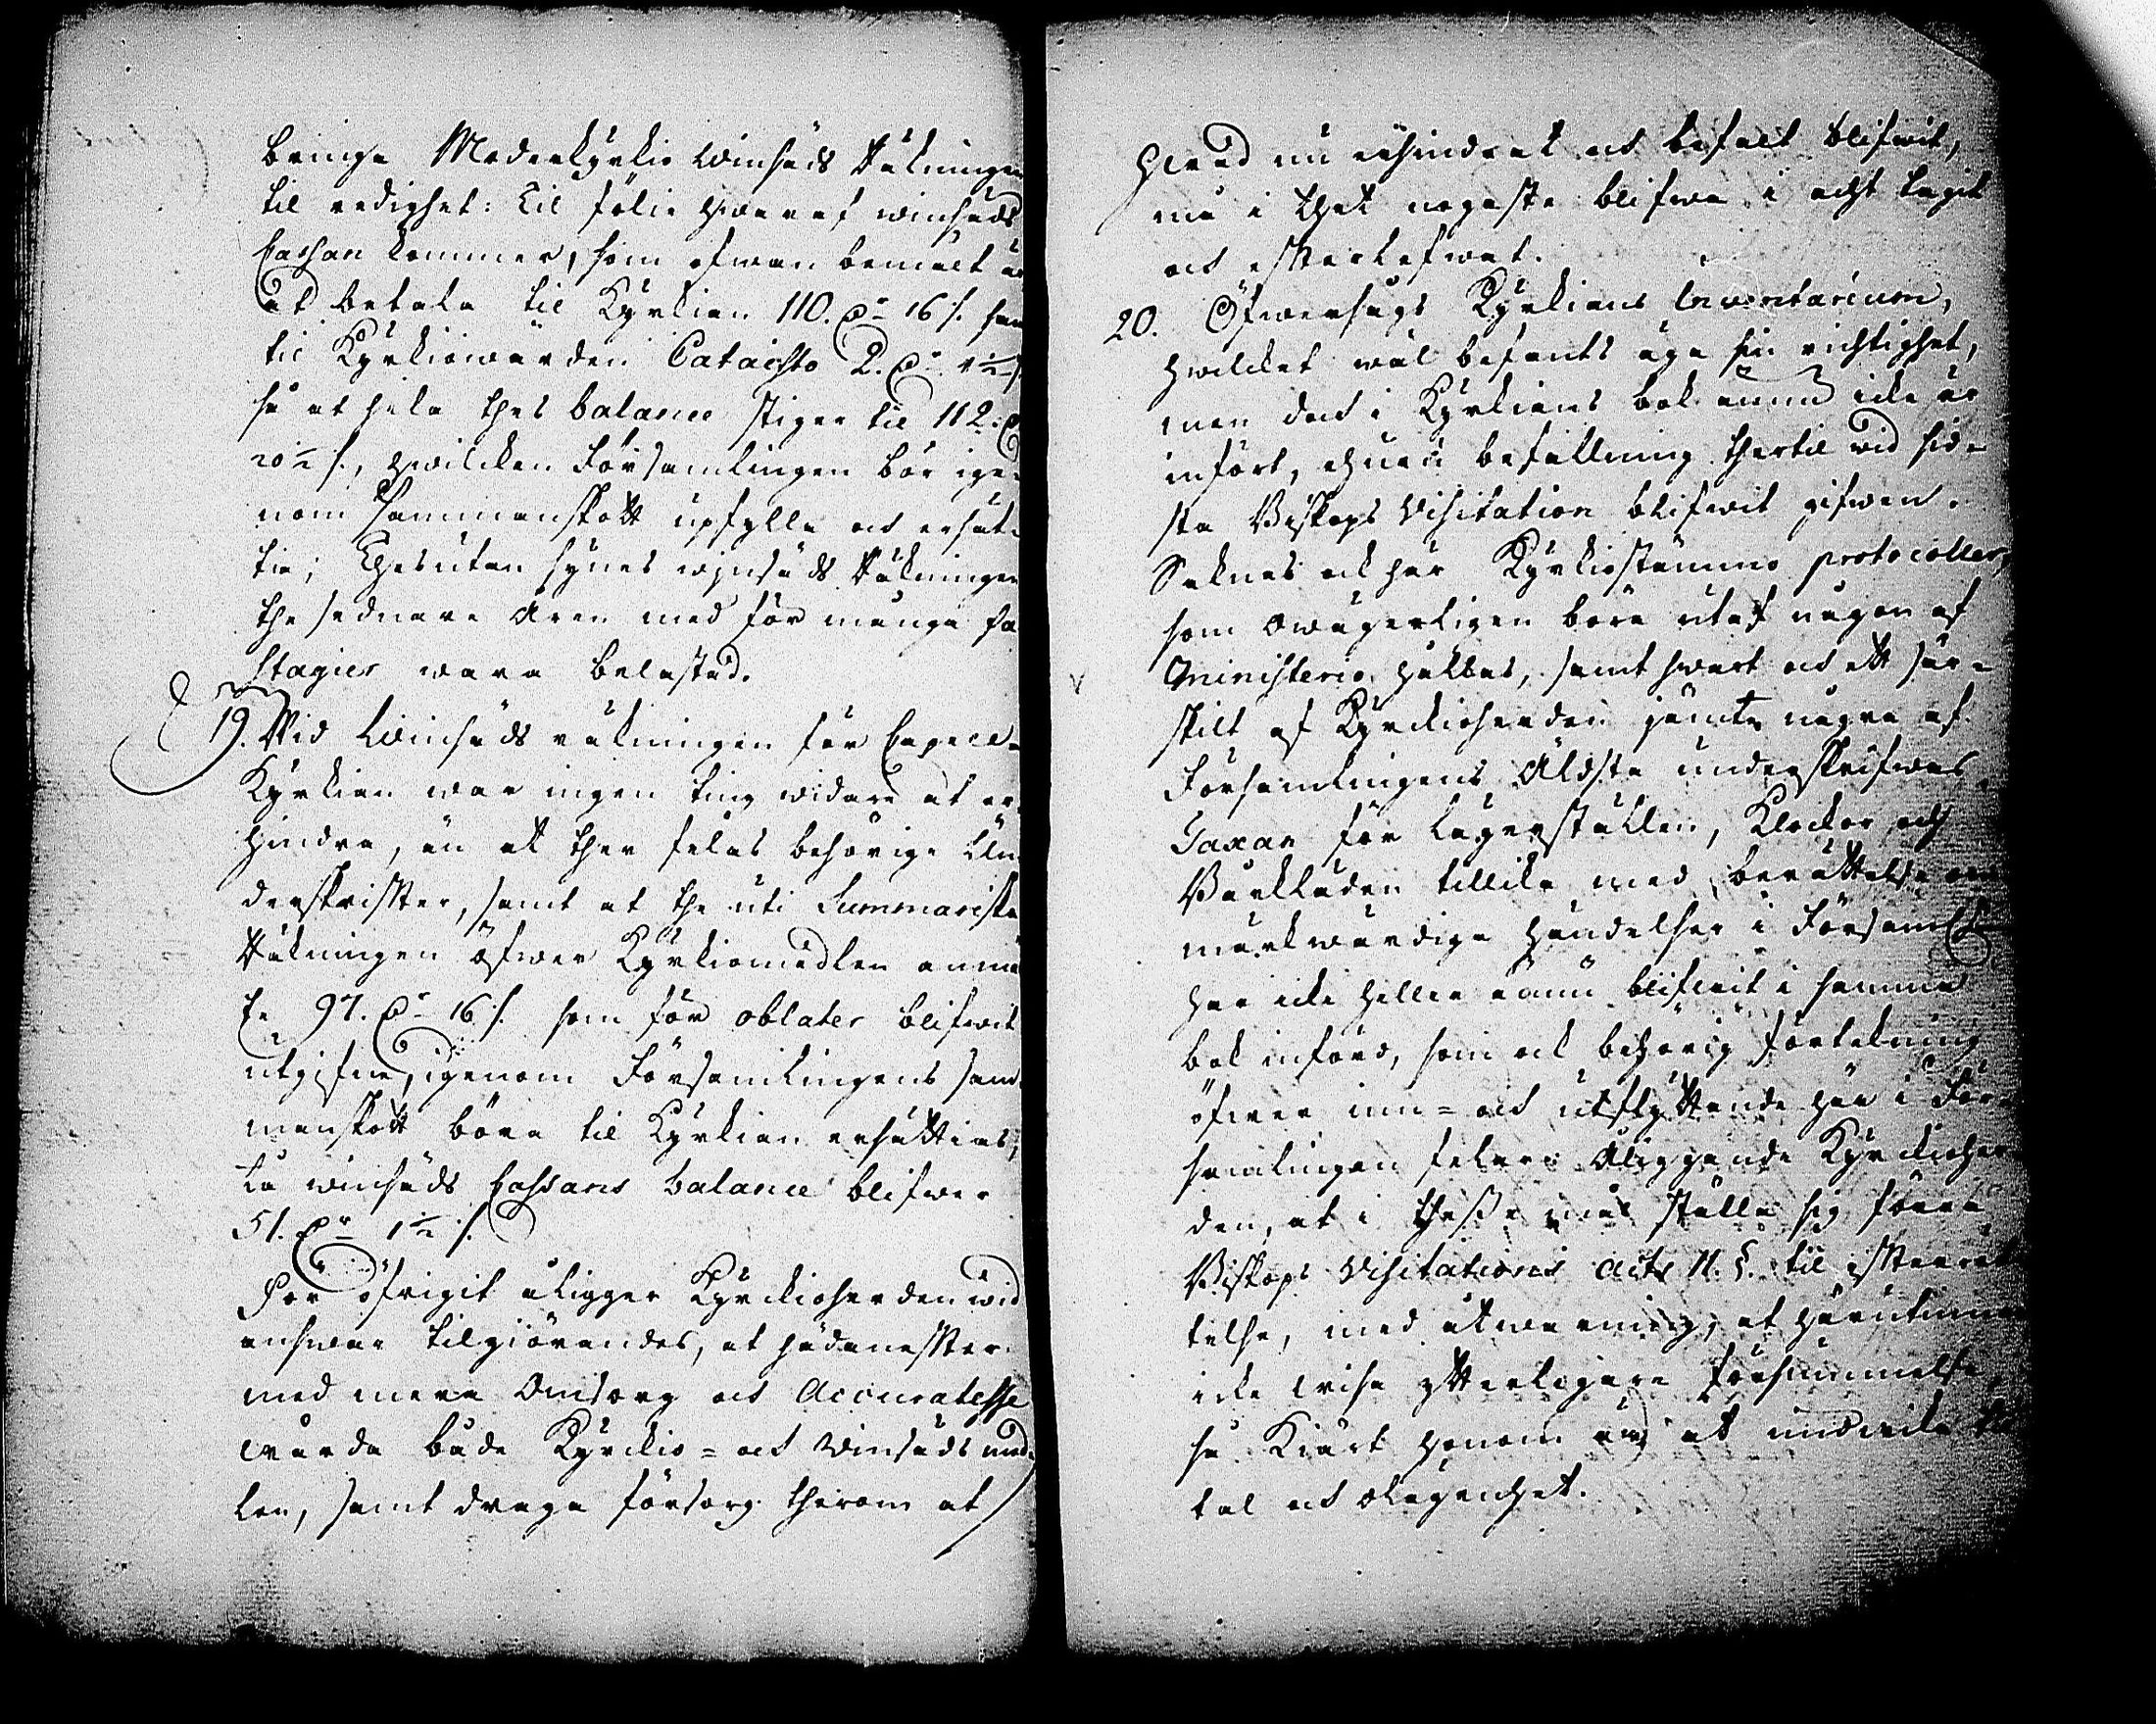 bringa Moderkyrkio winsäds Räkningen
til redighet: Til fölie hwaraf winsäds
Cassan kommer, som ofwan bemält är
at betala til Kyrkian 110. Dr 16 /. samt
til Kyrkiowärden Cataisto 2. Dr 4½ /.
så at hela thes balance stiger til 112: D
20½ /., hwilcken Församlingen bör ige-
nom Sammanskott upfylla och ersät-
tia; Thesutan synes winsäds Räkningen
the sednare Åren med för många fa
stagier wara belastad.
19. Wid Winsäds räkningen för Capell-
Kyrkian war ingen ting widare at er-
hindra, än at ther felas behörige Un-
derskrifter, samt at the uti Summariska
Räkningen öfwer Kyrkiomedlen anmär
te 97. Dr 16 /. som för oblater blifwit
utgifne, igenom Församlingens sam-
manskott böra til Kyrkian ersättias,
Då winsäds Cassans balance blifwer
51. Dr 1½ /.
För öfrigit åligger Kyrckioherden wid
answar tilgiörandes, at hädanefter
med mera Omsorg och Accuratesse
wårda både Kyrckio- och Winsäds med-
len, samt draga försorg therom at
hwad nu erhindrat och befalt blifwit,
må i thet nogaste blifwa i acht tagit
och efterlefwat.
20. Öfwersågs Kyrkians Inventarium,
hwilcket wäl befants äga sin richtighet,
men doch i Kyrkians bok ännu icke är
infört, ehuru befallning thertil wid sid-
sta Biskops Visitation blifwit gifwen.
Saknas ock här Kyrkiostämmo protocoller,
som owägerligen böra utaf någon af
Ministerio hållas, samt hwart och ett sär-
skilt af Kyrckioherden jämte några af
Församlingens Äldsta underskrifwas.
Taxan för Lägerställen, Klockor och
Bårkläden tillika med berättelse om
märkwärdiga händelser i Församl.
har icke heller ännu blifwit i samma
bok införd, som ock behörig förtekning
öfwer inn- och utflyttande här i För-
samlingen felar. Åliggande Kyrckioher
den, at i thesse mål ställa sig förra
Biskops Visitations Acts 11. §. til efterrät
telse, med åtwarning, at härutinnan
icke wisa ytterligare försummelse,
så kiärt honom är at undwika til
tal och olägenhet.